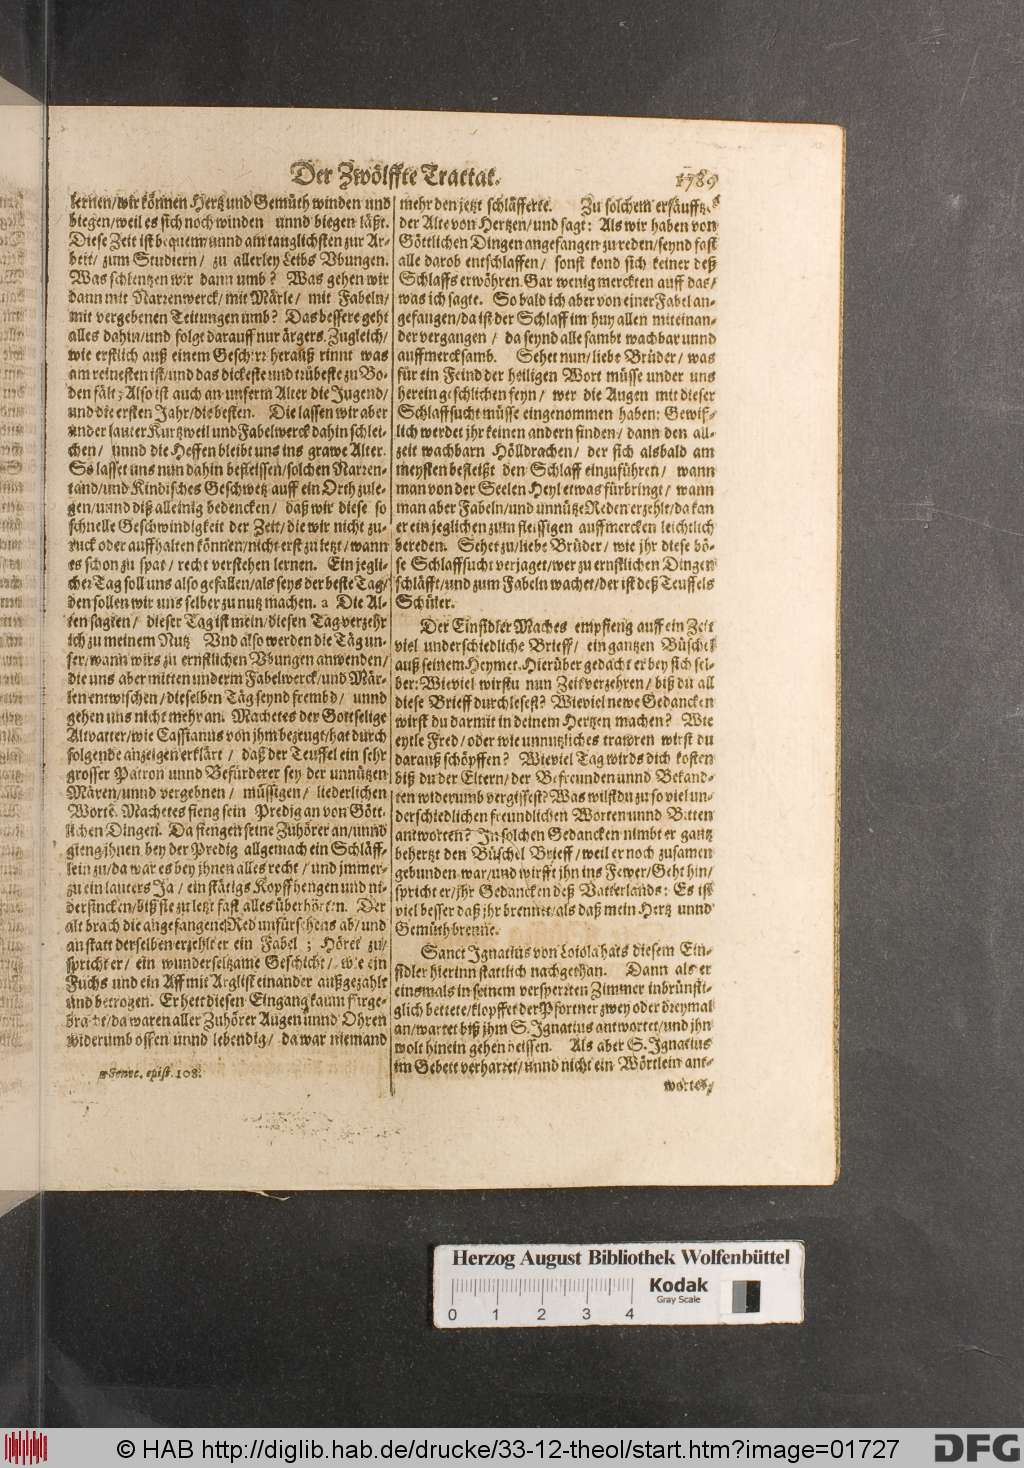 Der Zwölffte Tractat.
1789
lernen/wir können Hertz und Gemüth winden und
biegen/weil es sich noch winden unnd biegen läßt.
Diese Zeit ist bequem/unnd am tauglichsten zur Ar-
beit/ zum Studiern/ zu allerley Leibs Vbungen.
Was schlentzen wir dann umb? Was gehen wir
dann mit Narrenwerck/mit Märle/ mit Fabeln/
mit vergebenen Zeitungen umb? Das bessere geht
alles dahin/und folgt darauff nur ärgers. Zugleich/
wie erstlich auß einem Geschirr herauß rinnt was
am reinesten ist/und das dickeste und trübeste zu Bo-
den fält; Also ist auch an unserm Alter die Jugend/
und die ersten Jahr/die besten. Die lassen wir aber
under lauter Kurtzweil und Fabelwerck dahin schlei-
chen/ unnd die Heffen bleibt uns ins grawe Alter.
So lasset uns nun dahin befleissen/solchen Narren-
tand/und Kindisches Geschwetz auff ein Orth zule-
gen/unnd diß alleinig bedencken/ daß wir diese so
schnelle Geschwindigkeit der Zeit/die wir nicht zu-
ruck oder auffhalten können/nicht erst zu letzt/wann
es schon zu spat/ recht verstehen lernen. Ein jegli-
cher Tag soll uns also gefallen/als seys der beste Tag/
den sollen wir uns selber zu nutz machen. a Die Al-
ten sagten/ dieser Tag ist mein/diesen Tag verzehr
ich zu meinem Nutz Vnd also werden die Täg un-
ser/wann wirs zu ernstlichen Vbungen anwenden/
die uns aber mitten underm Fabelwerck/und Mär-
len entwischen/dieselben Täg seynd frembd/ unnd
gehen uns nicht mehr an. Machetes der Gottselige
Altvatter/wie Cassianus von jhm bezeugt/hat durch
folgende anzeigen erklärt/ daß der Teuffel ein sehr
grosser Patron unnd Befürderer sey der unnützen
Mären/unnd vergebnen/ müssigen/ liederlichen
Worte. Machetes fieng sein Predig an von Gött-
lichen Dingen. Da fiengen seine Zuhörer an/unnd
gieng jhnen bey der Predig allgemach ein Schläff-
lein zu/da war es bey jhnen alles recht/und jmmer-
zu ein lauters Ja/ ein stätigs Kopffhengen und ni-
dersincken/biß sie zu letzt fast alles überhörten. Der
alt brach die angefangene Red unfürsehens ab/und
an statt derselben erzehlt er ein Fabel; Höret zu/
spricht er/ ein wunderseltzame Geschicht/ wie ein
Fuchs und ein Aff mit Arglist einander außgezahlt
und betrogen. Er hett diesen Eingang kaum fürge-
bracht/da waren aller Zuhörer Augen unnd Ohren
widerumb offen unnd lebendig/ da war niemand
a Senec. epist. 108.
mehr den jetzt schläfferte. Zu solchem ersäufftz
der Alte von Hertzen/und sagt: Als wir haben von
Göttlichen Dingen angefangen zu reden/seynd fast
alle darob entschlaffen/ sonst kond sich keiner deß
Schlaffs erwöhren. Gar wenig merckten auff das/
was ich sagte. So bald ich aber von einer Fabel an-
gefangen/da ist der Schlaff im huy allen miteinan-
der vergangen/ da seynd alle sambt wachbar unnd
auffmercksamb. Sehet nun/liebe Brüder/ was
für ein Feind der heiligen Wort müsse under uns
herein geschlichen seyn/ wer die Augen mit dieser
Schlaffsucht müsse eingenommen haben: Gewiß-
lich werdet jhr keinen andern finden/ dann den all-
zeit wachbarn Hölldrachen/ der sich alsbald am
meysten befleißt den Schlaff einzuführen/ wann
man von der Seelen Heyl etwas fürbringt/ wann
man aber Fabeln/und unnütze Reden erzehlt/da kan
er ein jeglichen zum fleissigen auffmercken leichtlich
bereden. Sehet zu/liebe Brüder/ wie jhr diese bö-
se Schlaffsucht verjaget/wer zu ernstlichen Dingen
schläfft/und zum Fabeln wachet/der ist deß Teuffels
Schüler.
Der Einsidler Maches empfieng auff ein Zeit
viel underschiedliche Brieff/ ein gantzen Büschel
auß seinem Heymet. Hierüber gedacht er bey sich sel-
ber: Wieviel wirstu nun Zeit verzehren/ biß du all
diese Brieff durchlesest? Wieviel newe Gedancken
wirst du darmit in deinem Hertzen machen? Wie
eytle Fred/oder wie unnutzliches trawren wirst du
darauß schöpffen? Wieviel Tag wirds dich kosten
biß du der Eltern/der Befreunden unnd Bekand-
ten widerumb vergissest? Was wilstdu zu so viel un-
derschiedlichen freundlichen Worten unnd Bitten
antworten? In solchen Gedancken nimbt er gantz
behertzt den Büschel Brieff/weil er noch zusamen
gebunden war/und wirfft jhn ins Fewer/Geht hin/
spricht er/jhr Gedancken deß Vatterlands: Es ist
viel besser daß jhr brennet/als daß mein Hertz unnd
Gemüth brenne.
Sanct Ignatius von Loiola hats diesem Ein-
sidler hierinn stattlich nachgethan. Dann als er
einsmals in seinem versperrten Zimmer inbrünsti-
glich bettete/klopffet der Pförtner zwey oder dreymal
an/wartet biß jhm S. Ignatius antwortet/und jhn
wolt hinein gehen heissen. Als aber S. Ignatius
im Gebett verharret/unnd nicht ein Wörtlein ant-
wortet/
Herzog August Bibliothek Wolfenbüttel
Kodak
Gray Scale
0 1 2 3 4
© HAB http://diglib.hab.de/drucke/33-12-theol/start.htm?image=01727
DFG